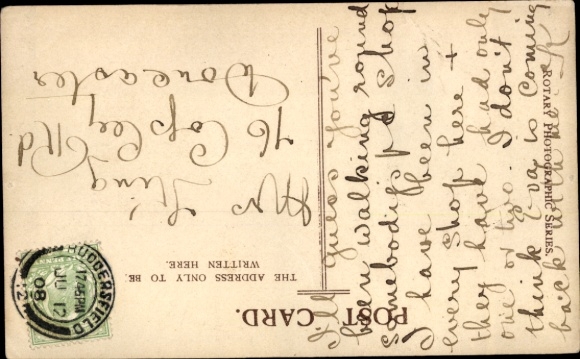 POST CARD.
THE ADDRESS ONLY TO BE
WRITTEN HERE.
ROTARY PHOTOGRAPHIC SERIES.
HUDDERSFIELD
12.45PM
JU 12
08
Mrs King
76 Copley Rd
Doncaster
I'll guess you've
been walking round
Somebodies Shop
I have been in
every Shop here +
they have had only
one or two. I don't
think Eva is coming
back with me